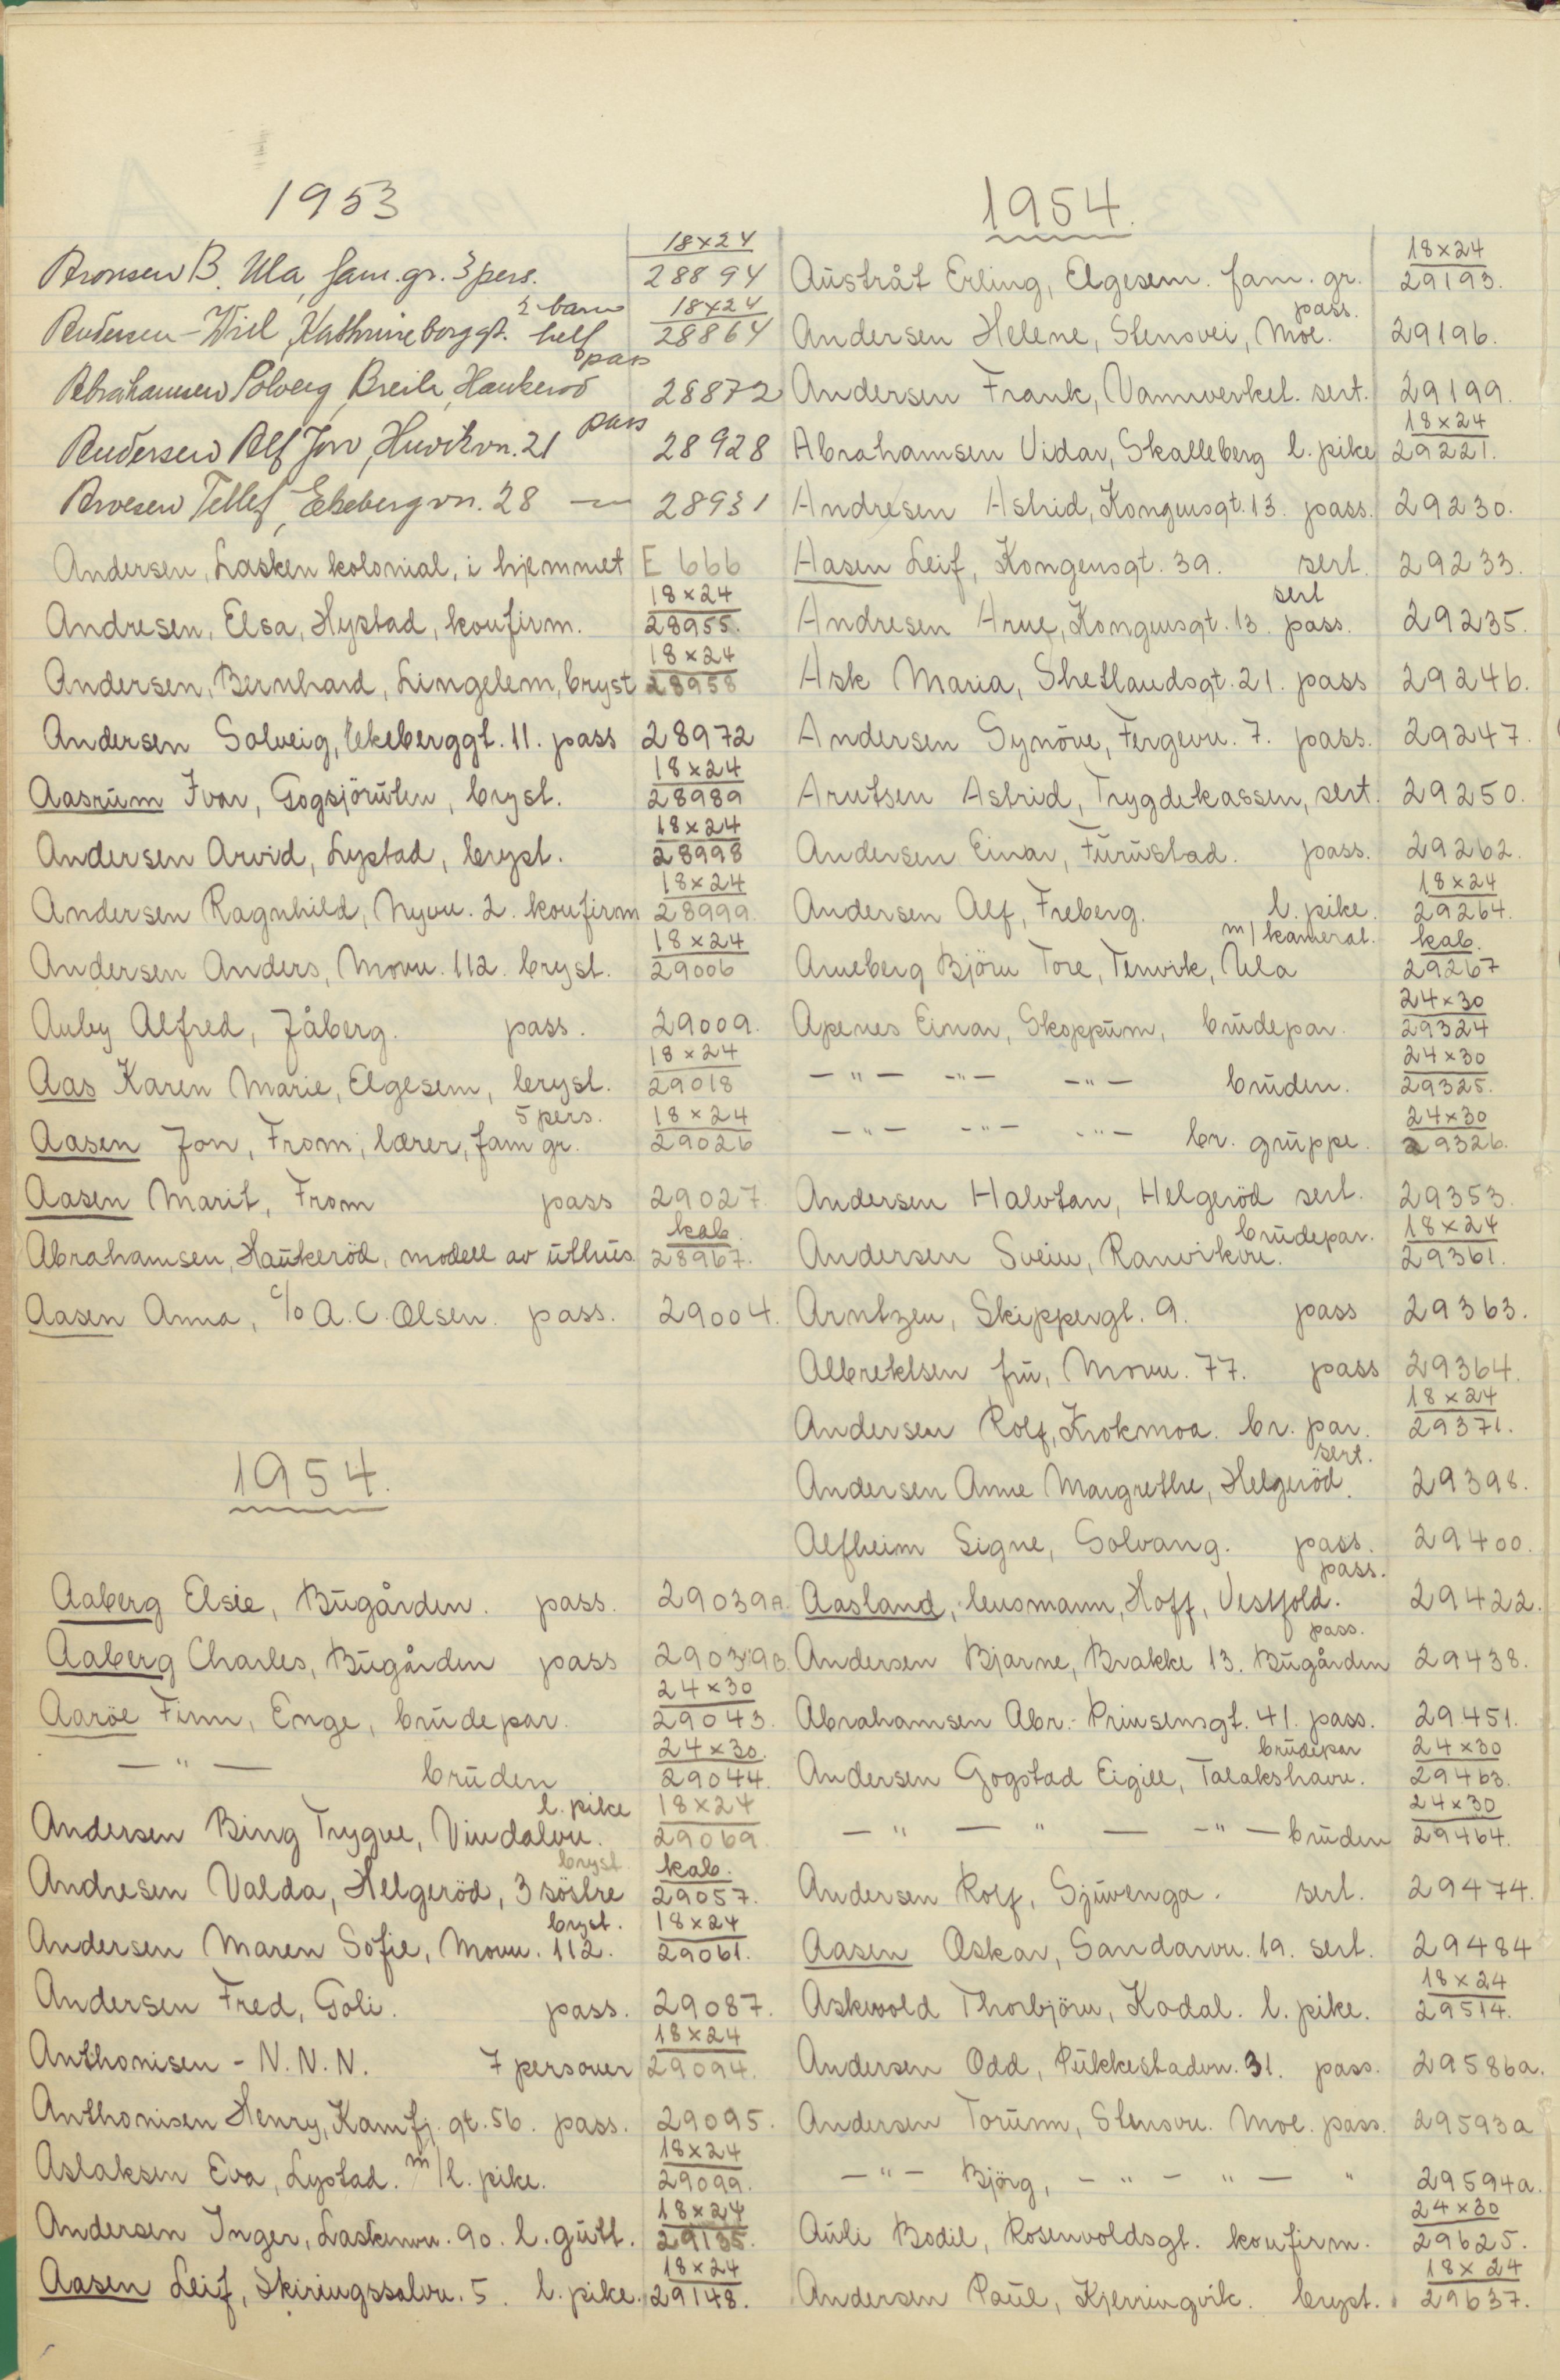 1953
Aronsen B. Ula, fam.gr. 3 pers. 18x24 28894
Andersen - Wiel, Kathrineborggt. ½ barn helf 18x24 28864
Abrahamsen Solveig, Breili, Haukerød pass 28872
Andersen Alf Jon, Huvikvn. 21 pass 28928
Arvesen Tellef, Ekebergvn. 28 — 28931
Andersen, Lasken kolonial, i hjemmet E 666
Andresen, Elsa, Hystad, konfirm. 18x24 28955.
Andersen, Bernhard, Lingelem, bryst 18x24 28958
Andersen Solveig, Ekeberggt. 11. pass 28972
Aasrum Ivar, Gogsjöruten, bryst. 18x24 28989
Andersen Arvid, Lystad, bryst. 18x24 28998
Andersen Ragnhild, Nyvn. 2. konfirm 18x24 28999.
Andersen Anders, Movn. 112. bryst. 18x24 29006
Auby Alfred, Jåberg. pass. 29009.
Aas Karen Marie, Elgesem, bryst. 18x24 29018
Aasen Jon, From, lærer, fam gr. 5 pers. 18x24 29026
Aasen Marit, From pass 29027.
Abrahamsen, Haukeröd, modell av uthus. kab. 28967.
Aasen Anna, c/o A.C. Olsen. pass. 29004.
1954.
Aaberg Elsie, Bugården. pass. 29039A.
Aaberg Charles, Bugården pass 29039B.
Aaröe Finn, Enge, brudepar. 24x30 29043.
— " — bruden 24x30. 29044.
Andersen Bing Trygve, Vindalvn. l. pike 18x24 29069.
Andresen Valda, Helgeröd, 3 söstre bryst kab. 29057.
Andersen Maren Sofie, Movn. 112. bryst. 18x24 29061.
Andersen Fred, Goli. pass. 29087.
Anthonisen - N.N.N. 7 personer 18x24 29094.
Anthonisen Henry, Kamfj.gt. 56. pass. 29095.
Aslaksen Eva, Lystad. m/l. pike. 18x24 29099.
Andersen Inger, Laskenvn. 90. l. gutt. 18x24 29135.
Aasen Leif, Skiringssalvn. 5. l. pike. 18x24 29148.
1954.
Austråt Erling, Elgesem. fam. gr. 18x24 29193.
Andersen Helene, Stensvei, Moe. pass. 29196.
Andersen Frank, Vannverket. sert. 29199.
Abrahamsen Vidar, Skalleberg l. pike 18x24 29221.
Andresen Astrid, Kongensgt. 13. pass. 29230.
Aasen Leif, Kongensgt. 39. sert. 29233.
Andresen Arne, Kongensgt. 13. sert pass. 29235.
Ask Maria, Shetlandsgt. 21. pass 29246.
Andersen Synöve, Fergevn. 7. pass. 29247.
Arntsen Astrid, Trygdekassen, sert. 29250.
Andersen Einar, Furustad. pass. 29262.
Andersen Alf, Freberg. l. pike. 18x24 29264.
Arneberg Björn Tore, Tenvik, Ula m/kamerat. kab. 29267
Apenes Einar, Skoppum, brudepar. 24x30 29324
— " — — " — — " — bruden. 24x30 29325.
— " — — " — — " — br. gruppe. 24x30 29326.
Andersen Halvtan, Helgeröd sert. 29353.
Andersen Svein, Ranvikvn. brudepar. 18x24 29361.
Arntzen, Skippergt. 9. pass 29363.
Albrektsen fru, Movn. 77. pass 29364.
Andersen Rolf, Krokmoa. br. par. 18x24 29371.
Andersen Anne Margrethe, Helgeröd. sert. 29398.
Alfheim Signe, Solvang. pass. 29400.
Aasland, lensmann, Hoff, Vestfold. pass. 29422.
Andersen Bjarne, Brakke 13. Bugården pass. 29438.
Abrahamsen Abr. - Prinsensgt. 41. pass. 29451.
Andersen Gogstad Eigill, Talakshavn. brudepar 24x30 29463.
— " — " — — " — bruden 24x30 29464.
Andersen Rolf, Sjuvenga. sert. 29474.
Aasen Oskar, Sandarvn. 19. sert. 29484
Askwold Thorbjörn, Kodal. l. pike. 18x24 29514.
Andersen Odd, Pukkestadvn. 31. pass. 29586a.
Andersen Torunn, Stensvn. Moe. pass. 29593a
— " — Björg, — " — " — " 29594a.
Auli Bodil, Rosenvoldsgt. konfirm. 24x30 29625.
Andersen Paul, Kjerringvik. bryst. 18x24 29637.